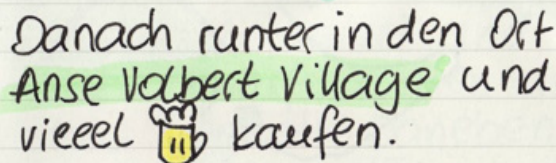 Danach runter in den Ort
Anse Volbert Village und
vieeel kaufen.